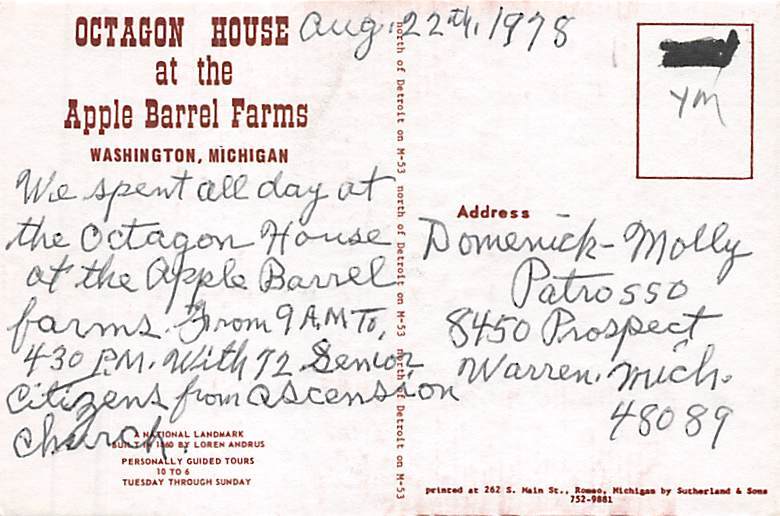 OCTAGON HOUSE
at the
Apple Barrel Farms
WASHINGTON, MICHIGAN
Aug. 22th, 1978
We spent all day at
the Octagon House
at the Apple Barrel
farms. From 9 A.M To,
430 P.M. With 72 Senior
Citizens from ascension
church.
A NATIONAL LANDMARK
BUILT IN 1860 BY LOREN ANDRUS
PERSONALLY GUIDED TOURS
10 TO 6
TUESDAY THROUGH SUNDAY
north of Detroit on M-53 north of Detroit on M-53 north of Detroit on M-53
YM
Address
Domenick-Molly
Patrosso
8450 Prospect
Warren. Mich.
48089
printed at 262 S. Main St., Romeo, Michigan by Sutherland & Sons
752-9881